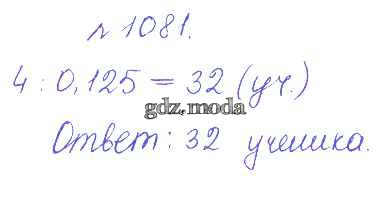 № 1081.
4 : 0,125 = 32 (уч.)
gdz.moda
Ответ: 32 ученика.